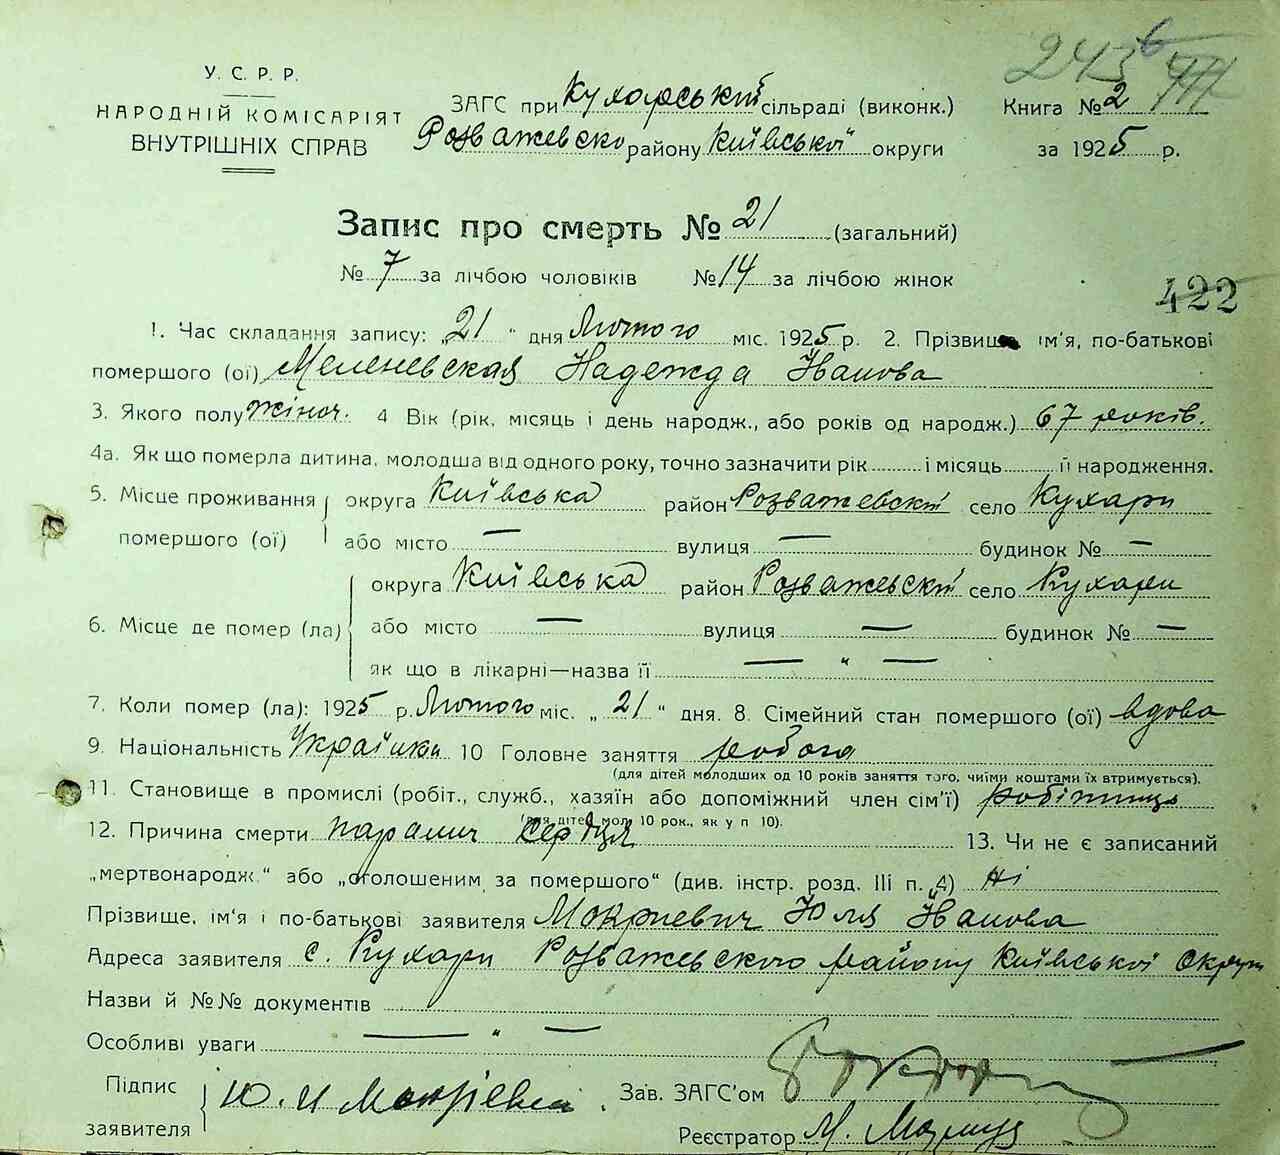 243
У. С. Р. Р.
НАРОДНІЙ КОМІСАРІЯТ
ВНУТРІШНІХ СПРАВ
ЗАГС при Кухарський сільраді (виконк.)
Розважевско району Київської округи
Книга № 2
за 1925 р.
Запис про смерть № 21 (загальний)
№ 7 за лічбою чоловіків № 14 за лічбою жінок
422
1. Час складання запису: „21“ дня Лютого міс. 1925 р. 2. Прізвище ім'я, по-батькові
помершого (ої) Меленевская Надежда Іванова
3. Якого полу жіноч. 4 Вік (рік, місяць і день народж., або років од народж.) 67 років.
4а. Як що померла дитина, молодша від одного року, точно зазначити рік і місяць її народження.
5. Місце проживання округа Київська район Розважевскі село Кухари
помершого (ої) або місто — вулиця — будинок № —
округа Київська район Розважевскі село Кухари
6. Місце де помер (ла) або місто — вулиця — будинок № —
як що в лікарні—назва її — " —
7. Коли помер (ла): 1925 р. Лютого міс. „21“ дня. 8. Сімейний стан помершого (ої) вдова
9. Національність Українка 10 Головне заняття робота
(для дітей молодших од 10 років заняття того, чиїми коштами їх втримується).
11. Становище в промислі (робіт., служб., хазяїн або допоміжний член сім'ї) робітниця
(для дітей мол. 10 рок., як у п 10).
12. Причина смерти паралич сердця 13. Чи не є записаний
„мертвонародж.“ або „оголошеним за помершого“ (див. інстр. розд. III п. 4) ні
Прізвище, ім'я і по-батькові заявителя Мокриевич Юля Іванова
Адреса заявителя с. Кухари Розважевского району Київської округи
Назви й №№ документів
Особливі уваги — " —
Підпис
заявителя
Ю. И
Зав. ЗАГС'ом
Реєстратор М.